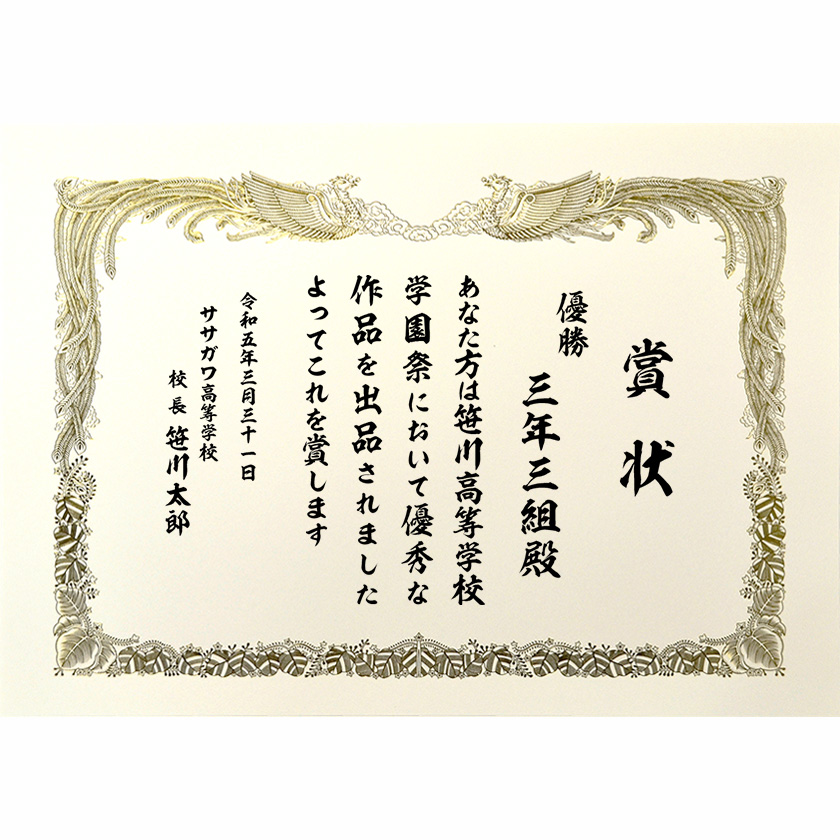 賞状
優勝
三年三組殿
あなた方は笹川高等学校
学園祭において優秀な
作品を出品されました
よってこれを賞します
令和五年三月三十一日
ササガワ高等学校
校長 笹川太郎